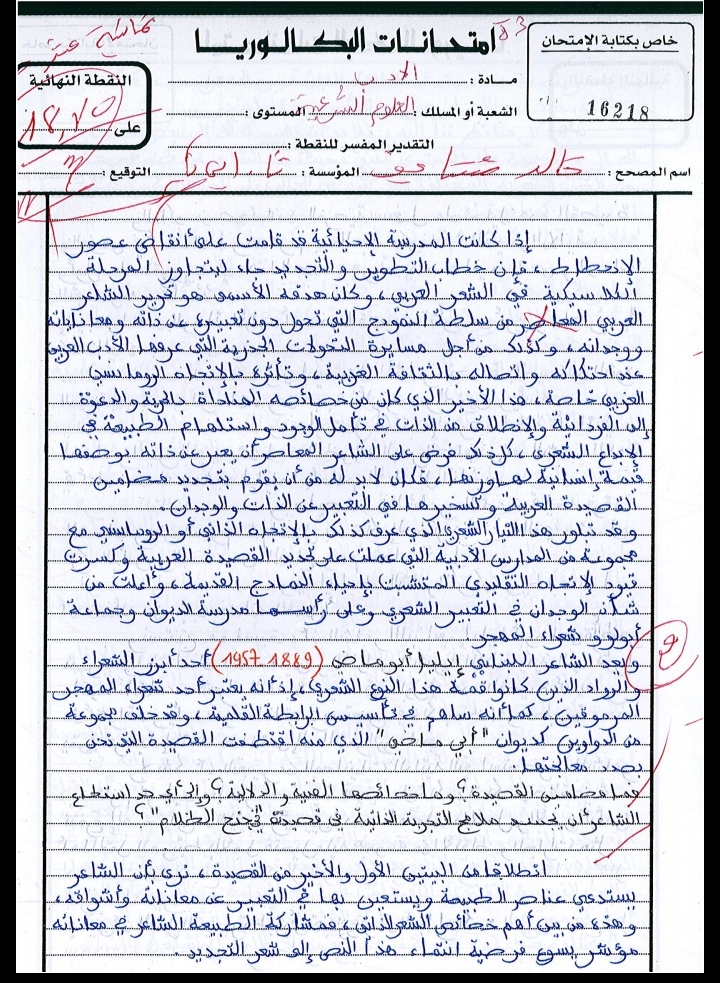 خاص بكتابة الإمتحان
امتحانات البكالوريا
16218
النقطة النهائية
18,75
على
مادة : الأدب
الشعبة أو المسلك : العلوم الشرعية المستوى :
التقدير المفسر للنقطة :
اسم المصحح : خالد المؤسسة : التوقيع :
إذا كانت المدرسة الإحيائية قد قامت على أنقاض عصور
الإنحطاط ، فإن خطاب التطوير والتجديد جاء ليتجاوز المرحلة
الكلاسيكية في الشعر العربي ، وكان هدفه الأسمى هو تحرير الشاعر
العربي المعاصر من سلطة النموذج التي تحول دون تعبيره عن ذاته ومعاناته
ووجدانه ، وكذلك من أجل مسايرة التحولات الجذرية التي عرفها الأدب العربي
عند احتكاكه واتصاله بالثقافة الغربية ، وتأثره بالإتجاه الرومانسي
الغربي خاصة ، هذا الأخير الذي كان من خصائصه المناداة بالحرية والدعوة
إلى الفردانية والإنطلاق من الذات في تأمل الوجود واستلهام الطبيعة في
الإبداع الشعري ، كل ذلك فرض على الشاعر المعاصر أن يعبر عن ذاته بوصفها
قيمة إنسانية لها وزنها ، فكان لابد له من أن يقوم بتجديد مضامين
القصيدة العربية و تسخيرها في التعبير عن الذات والوجدان .
وقد تبلور هذا التيار الشعري الذي عرف كذلك بالإتجاه الذاتي أو الرومانسي مع
مجموعة من المدارس الأدبية التي عملت على تجديد القصيدة العربية وكسرت
قيود الإتجاه التقليدي المتشبث بإحياء النماذج القديمة ، وأعلت من
شأن الوجدان في التعبير الشعري وعلى رأسها مدرسة الديوان وجماعة
أبولو و شعراء المهجر
ويعد الشاعر اللبناني إيليا أبو ماضي (1889 1957) أحد أبرز الشعراء
والرواد الذين كانوا قمة هذا النوع الشعري ، إذ أنه يعتبر أحد شعراء المهجر
المرموقين ، كما أنه ساهم في تأسيس الرابطة القلمية ، وقد خلف مجموعة
من الدواوين كديوان "أبي ماضي" الذي منه اقتطفت القصيدة التي نحن
بصدد معالجتها .
فما مضامين القصيدة ؟ وما خصائصها الفنية و الدلالية ؟ وإلى أي حد استطاع
الشاعر أن يجسد ملامح التجربة الذاتية في قصيدة "في جنح الظلام" ؟
انطلاقا من البيتين الأول والأخير من القصيدة ، نرى بأن الشاعر
يستدعي عناصر الطبيعة ويستعين بها في التعبير عن معاناته وأشواقه ،
وهذه من بين أهم خصائص الشعر الذاتي ، فمشاركة الطبيعة الشاعر في معاناته
مؤشر يسوغ فرضية انتماء هذا النص إلى شعر التجديد .